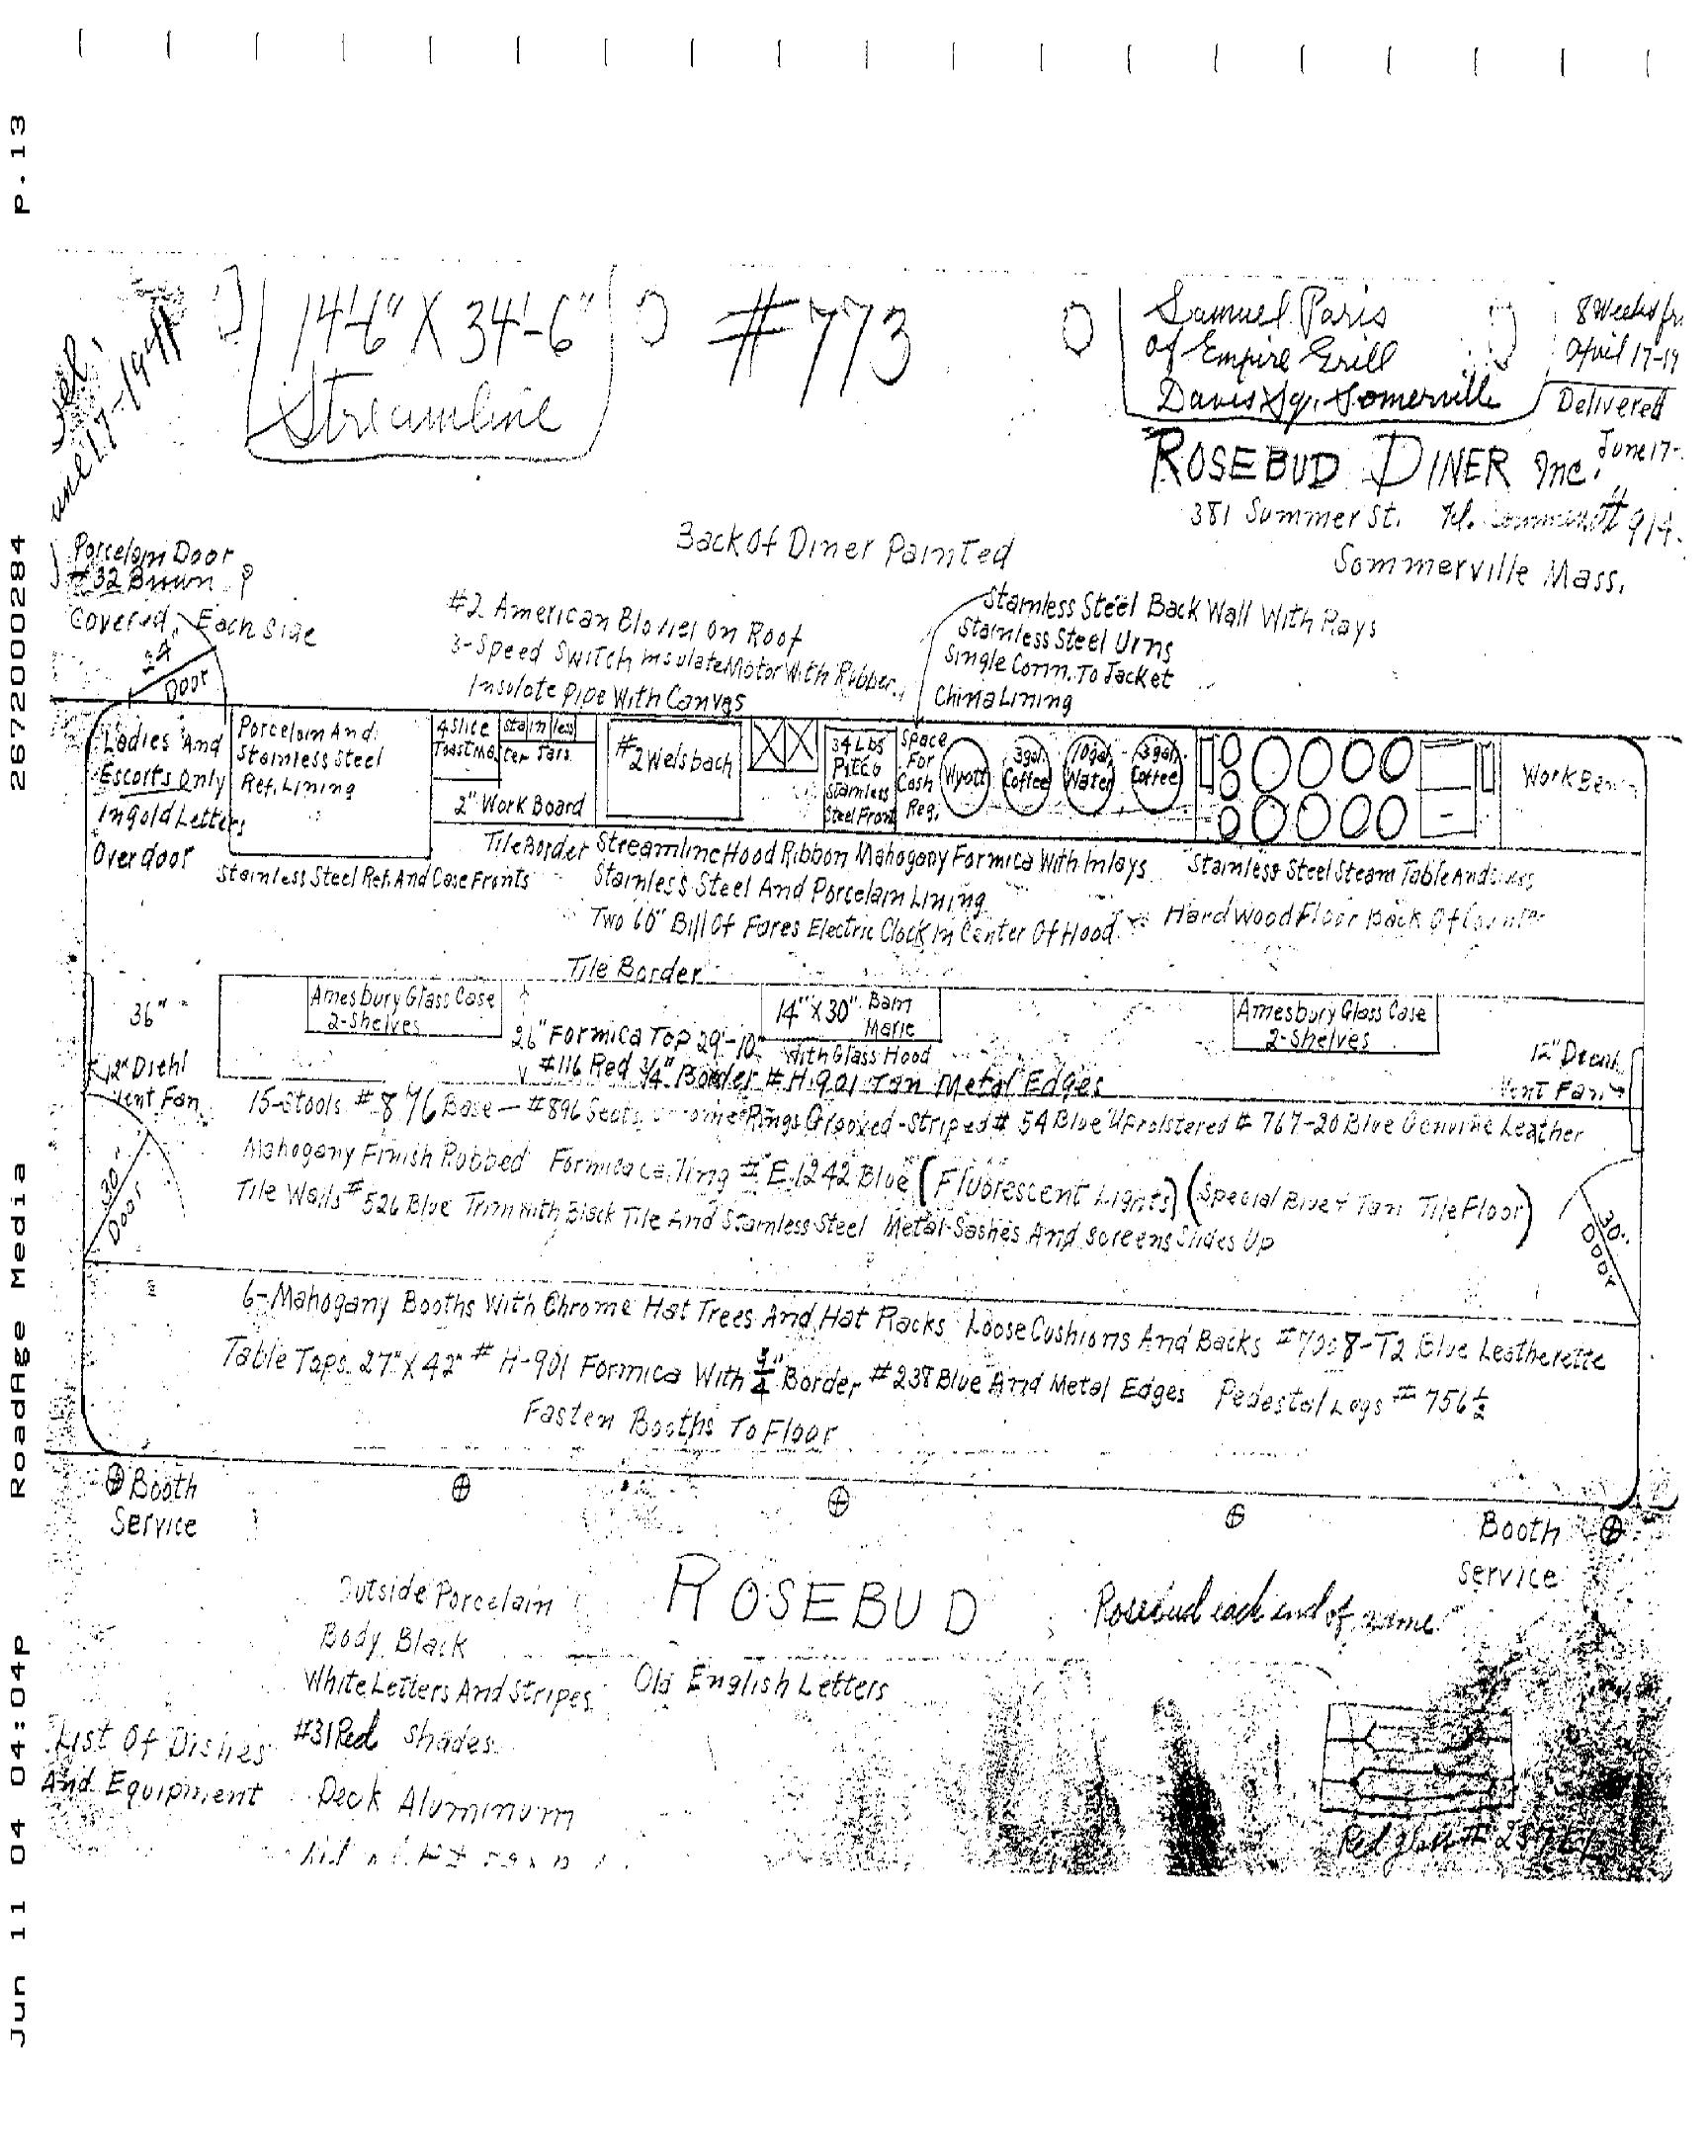 P.13
2672000284
RoadAge Media
Jun 11 04 04:04p
June 17-1941
14'-6" X 34'-6"
Streamline
#773
Samuel Paris
of Empire Grill
Davis Sq. Somerville
8 Weeks
April 17-19
Delivered
June 17-
ROSEBUD DINER Inc.
381 Summer St. Tel.
Sommerville Mass.
Back Of Diner Painted
Porcelain Door
#32 Brown
Covered Each Side
24"
Door
#2 American Blower On Roof
3-Speed Switch Insulate Motor With Rubber
Insulate Pipe With Canvas
Stainless Steel Back Wall With Rays
Stainless Steel Urns
Single Conn. To Jacket
China Lining
Ladies And
Escorts Only
In Gold Letters
Over door
Porcelain And
Stainless Steel
Ref. Lining
4 Slice
Toastma
stainless
ter Jars
2" Work Board
#2 Welsbach
34 Lbs
Pitco
Stainless
Steel Front
Space
For
Cash
Reg.
Wyott
3 gal.
Coffee
10 gal.
Water
3 gal.
Coffee
Work
Stainless Steel Ref. And Case Fronts
Tile Border Streamline Hood Ribbon Mahogany Formica With Inlays
Stainless Steel And Porcelain Lining
Two 60" Bill Of Fares Electric Clock In Center Of Hood
Stainless Steel Steam Table And
Hard Wood Floor Back Of
Tile Border
36"
Amesbury Glass Case
2-Shelves
14" X 30" Bain
Marie
With Glass Hood
Amesbury Glass Case
2-Shelves
26" Formica Top 29'-10"
#116 Red 3/4" Border #H-901 Tan Metal Edges
12" Diehl
Vent Fan
12" Diehl
Vent Fan
15-Stools #876 Base - #896 Seats Rings Grooved-Striped #54 Blue Upholstered #767-20 Blue Genuine Leather
Mahogany Finish Rubbed Formica Ceiling #E1242 Blue (Fluorescent Lights) (Special Blue & Tan Tile Floor)
Tile Walls #526 Blue Trim with Black Tile And Stainless Steel Metal-Sashes And Screens Slides Up
30"
Door
30"
Door
6-Mahogany Booths With Chrome Hat Trees And Hat Racks Loose Cushions And Backs Blue Leatherette
Table Tops 27" X 42" #H-901 Formica With 3/4" Border #238 Blue And Metal Edges Pedestal Legs #756 1/2
Fasten Booths To Floor
Booth
Service
Booth
Service
ROSEBUD
Rosebud each end of name
Outside Porcelain
Body Black
White Letters And Stripes
Old English Letters
#31 Red Shades
List Of Dishes
And Equipment
Deck Aluminum
Red glass #